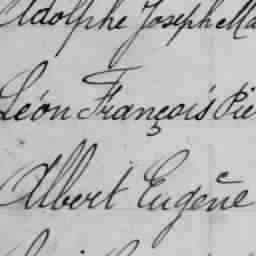 Adolphe Joseph Ma
Léon François Pie
Albert Eugène